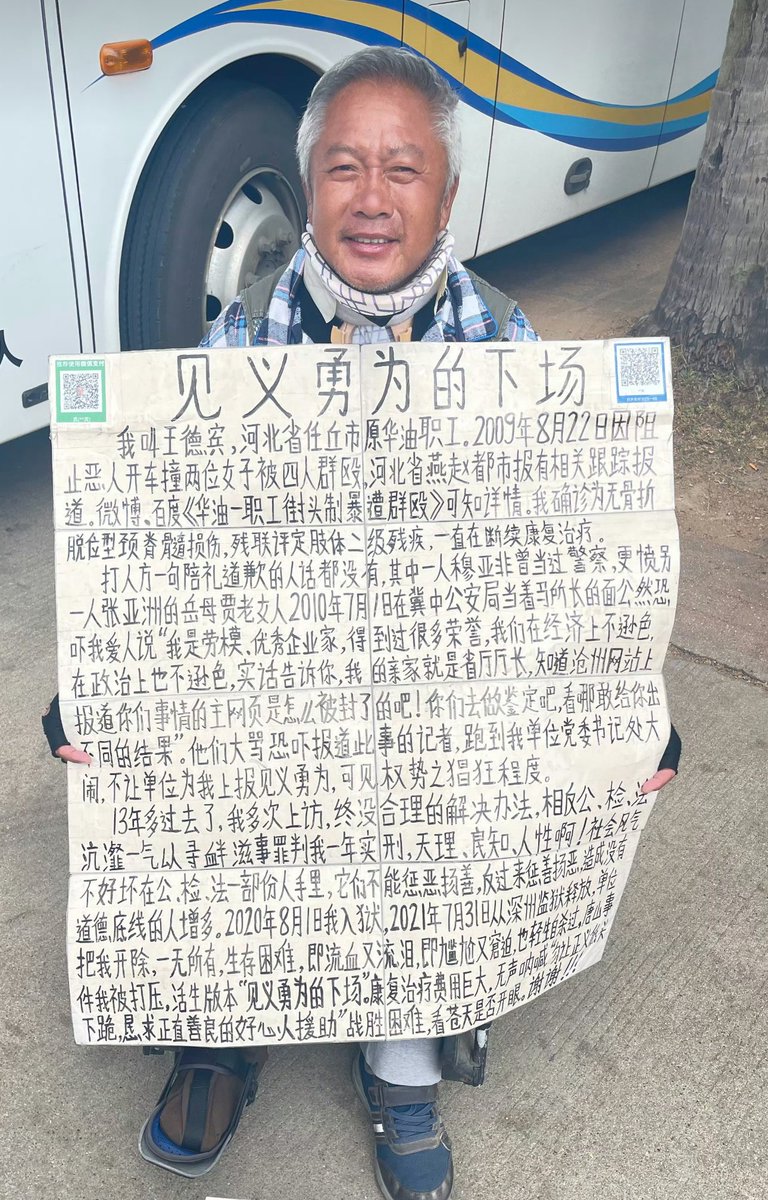 见义勇为的下场
我叫王德宾，河北省任丘市原华油职工。2009年8月22日因阻
止恶人开车撞两位女子被四人群殴，河北省燕赵都市报有相关跟踪报
道。微博、百度《华油一职工街头制暴遭群殴》可知详情。我确诊为无骨折
脱位型颈脊髓损伤，残联评定肢体二级残疾，一直在断续康复治疗。
打人方一句陪礼道歉的人话都没有，其中一人穆亚非曾当过警察，更愤另
一人张亚洲的岳母贾老女人2010年7月1日在冀中公安局当着马所长的面公然恐
吓我爱人说“我是劳模、优秀企业家，得到过很多荣誉，我们在经济上不逊色，
在政治上也不逊色，实话告诉你，我的亲家就是省厅厅长，知道沧州网站上
报道你们事情的主网页是怎么被封了的吧！你们去做鉴定吧，看哪敢给你出
不同的结果”。他们大骂恐吓报道此事的记者，跑到我单位党委书记处大
闹，不让单位为我上报见义勇为，可见权势之猖狂程度。
13年多过去了，我多次上访，终没合理的解决办法，相反公、检、法
沆瀣一气以寻衅滋事罪判我一年实刑，天理、良知、人性啊！社会风气
不好坏在公、检、法一部份人手里，它们不能惩恶扬善，反过来惩善扬恶，造成没有
道德底线的人增多。2020年8月1日我入狱，2021年7月31日从深州监狱释放，单位
把我开除，一无所有，生存困难，即流血又流泪，即尴尬又窘迫，也轻生自杀过，唐山事
件我被打压，活生版本“见义勇为的下场”。康复治疗费用巨大，无声呐喊
下跪，恳求正直善良的好心人援助”战胜困难，看苍天是否开眼。谢谢！！！